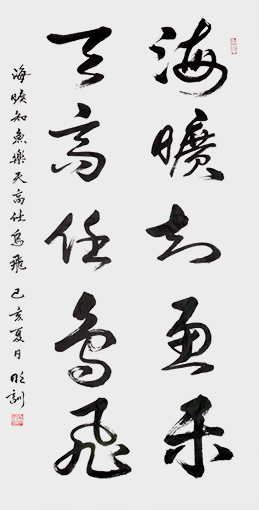 海曠知魚樂
天高任鳥飛
海曠知魚樂天高任鳥飛 己亥夏日